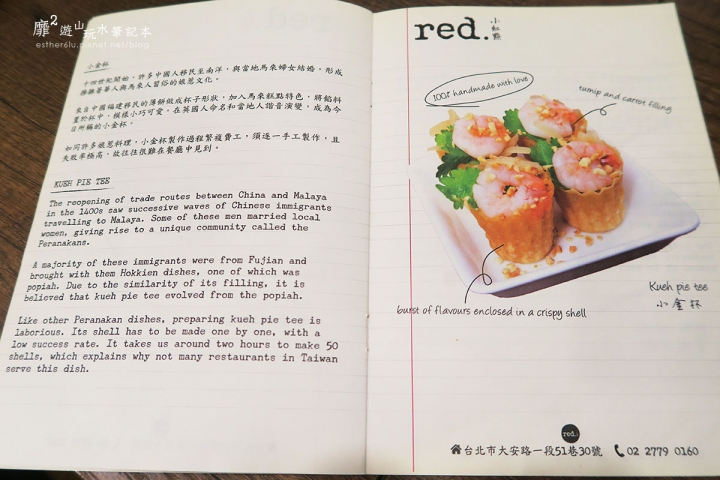 靡²遊山玩水筆記本
esther6lu.pixnet.net/blog
小金杯
十四世紀開始，許多中國人移民至南洋，與當地馬來婦女結婚，形成
揉雜著華人與馬來人習俗的娘惹文化。
來自中國福建移民的薄餅做成杯子形狀，加入馬來糕點特色，將餡料
置於杯中，模樣小巧可愛，在英國人命名和當地人諧音演變，成為今
日所稱的小金杯。
如同許多娘惹料理，小金杯製作過程繁複費工，須逐一手工製作，且
失敗率極高，故往往很難在餐廳中見到。
KUEH PIE TEE
The reopening of trade routes between China and Malaya
in the 1400s saw successive waves of Chinese immigrants
travelling to Malaya. Some of these men married local
women, giving rise to a unique community called the
Peranakans.
A majority of these immigrants were from Fujian and
brought with them Hokkien dishes, one of which was
popiah. Due to the similarity of its filling, it is
believed that kueh pie tee evolved from the popiah.
Like other Peranakan dishes, preparing kueh pie tee is
laborious. Its shell has to be made one by one, with a
low success rate. It takes us around two hours to make 50
shells, which explains why not many restaurants in Taiwan
serve this dish.
red. 小紅點
100% handmade with love
turnip and carrot filling
Kueh pie tee
小金杯
burst of flavours enclosed in a crispy shell
red.
台北市大安路一段51巷30號 02 2779 0160